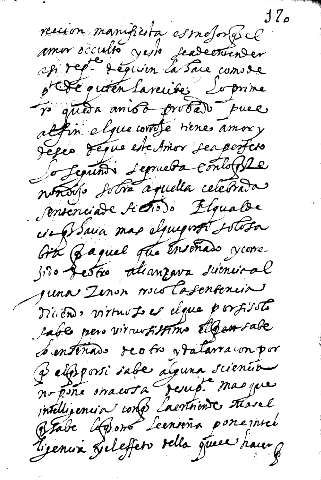 370
rrecion manifiesta es mejor q̃ el
amor occulto y esto se a de entender
assi de pte de quien la haçe como de
pte de quien la reçibe. Lo prime
ro queda arriba probado pues
al fin el que corrije tiene amor y
deseo de que este Amor sea perfeto
Lo segundo se prueba con lo q̃ Ze
non dijo sobre aquella celebrada
sentencia de Hesiodo El qual de
cia q̃ haçia mas el que por si solo sa
bia q̃ aquel que enseñado y corre
jido de otro alcanzava sciencia al
guna Zenon troco la sentencia
diciendo virtuoso es el que por si solo
sabe pero virtuosissimo el que sabe
lo enseñado de otro y da la raçon por
q̃ el q̃ por si sabe alguna sciencia
no pone otra cosa de su pte mas que
intelligencia con q̃ la entiende mas el
q̃ sabe lo q̃ otro le enseña pone inte
ligencia y el effeto della que es hacer